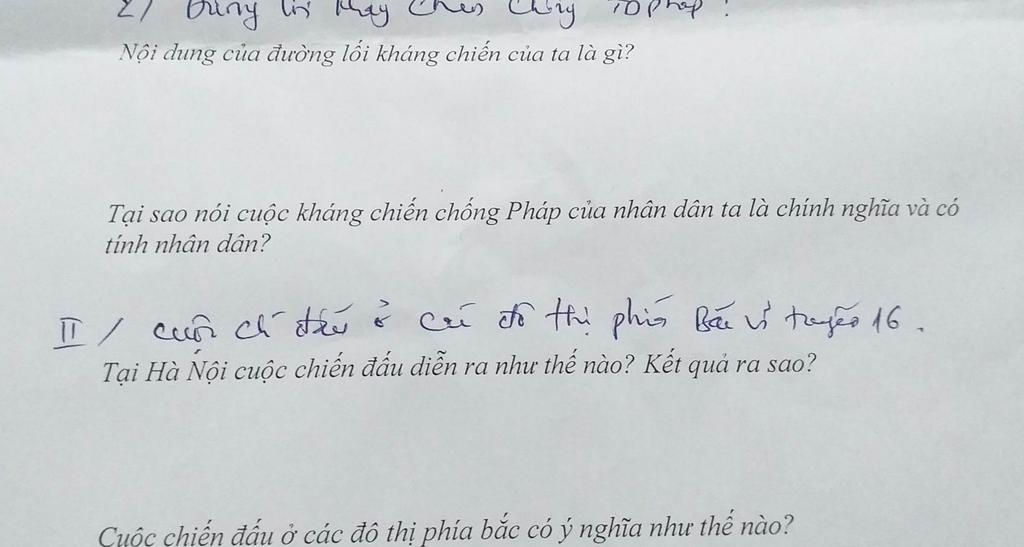 2/ Đường lối kháng chiến chống TD Pháp :
Nội dung của đường lối kháng chiến của ta là gì?
Tại sao nói cuộc kháng chiến chống Pháp của nhân dân ta là chính nghĩa và có
tính nhân dân?
II / cuộc ch đấu ở các đô thị phía Bắc vĩ tuyến 16 .
Tại Hà Nội cuộc chiến đấu diễn ra như thế nào? Kết quả ra sao?
Cuộc chiến đấu ở các đô thị phía bắc có ý nghĩa như thế nào?